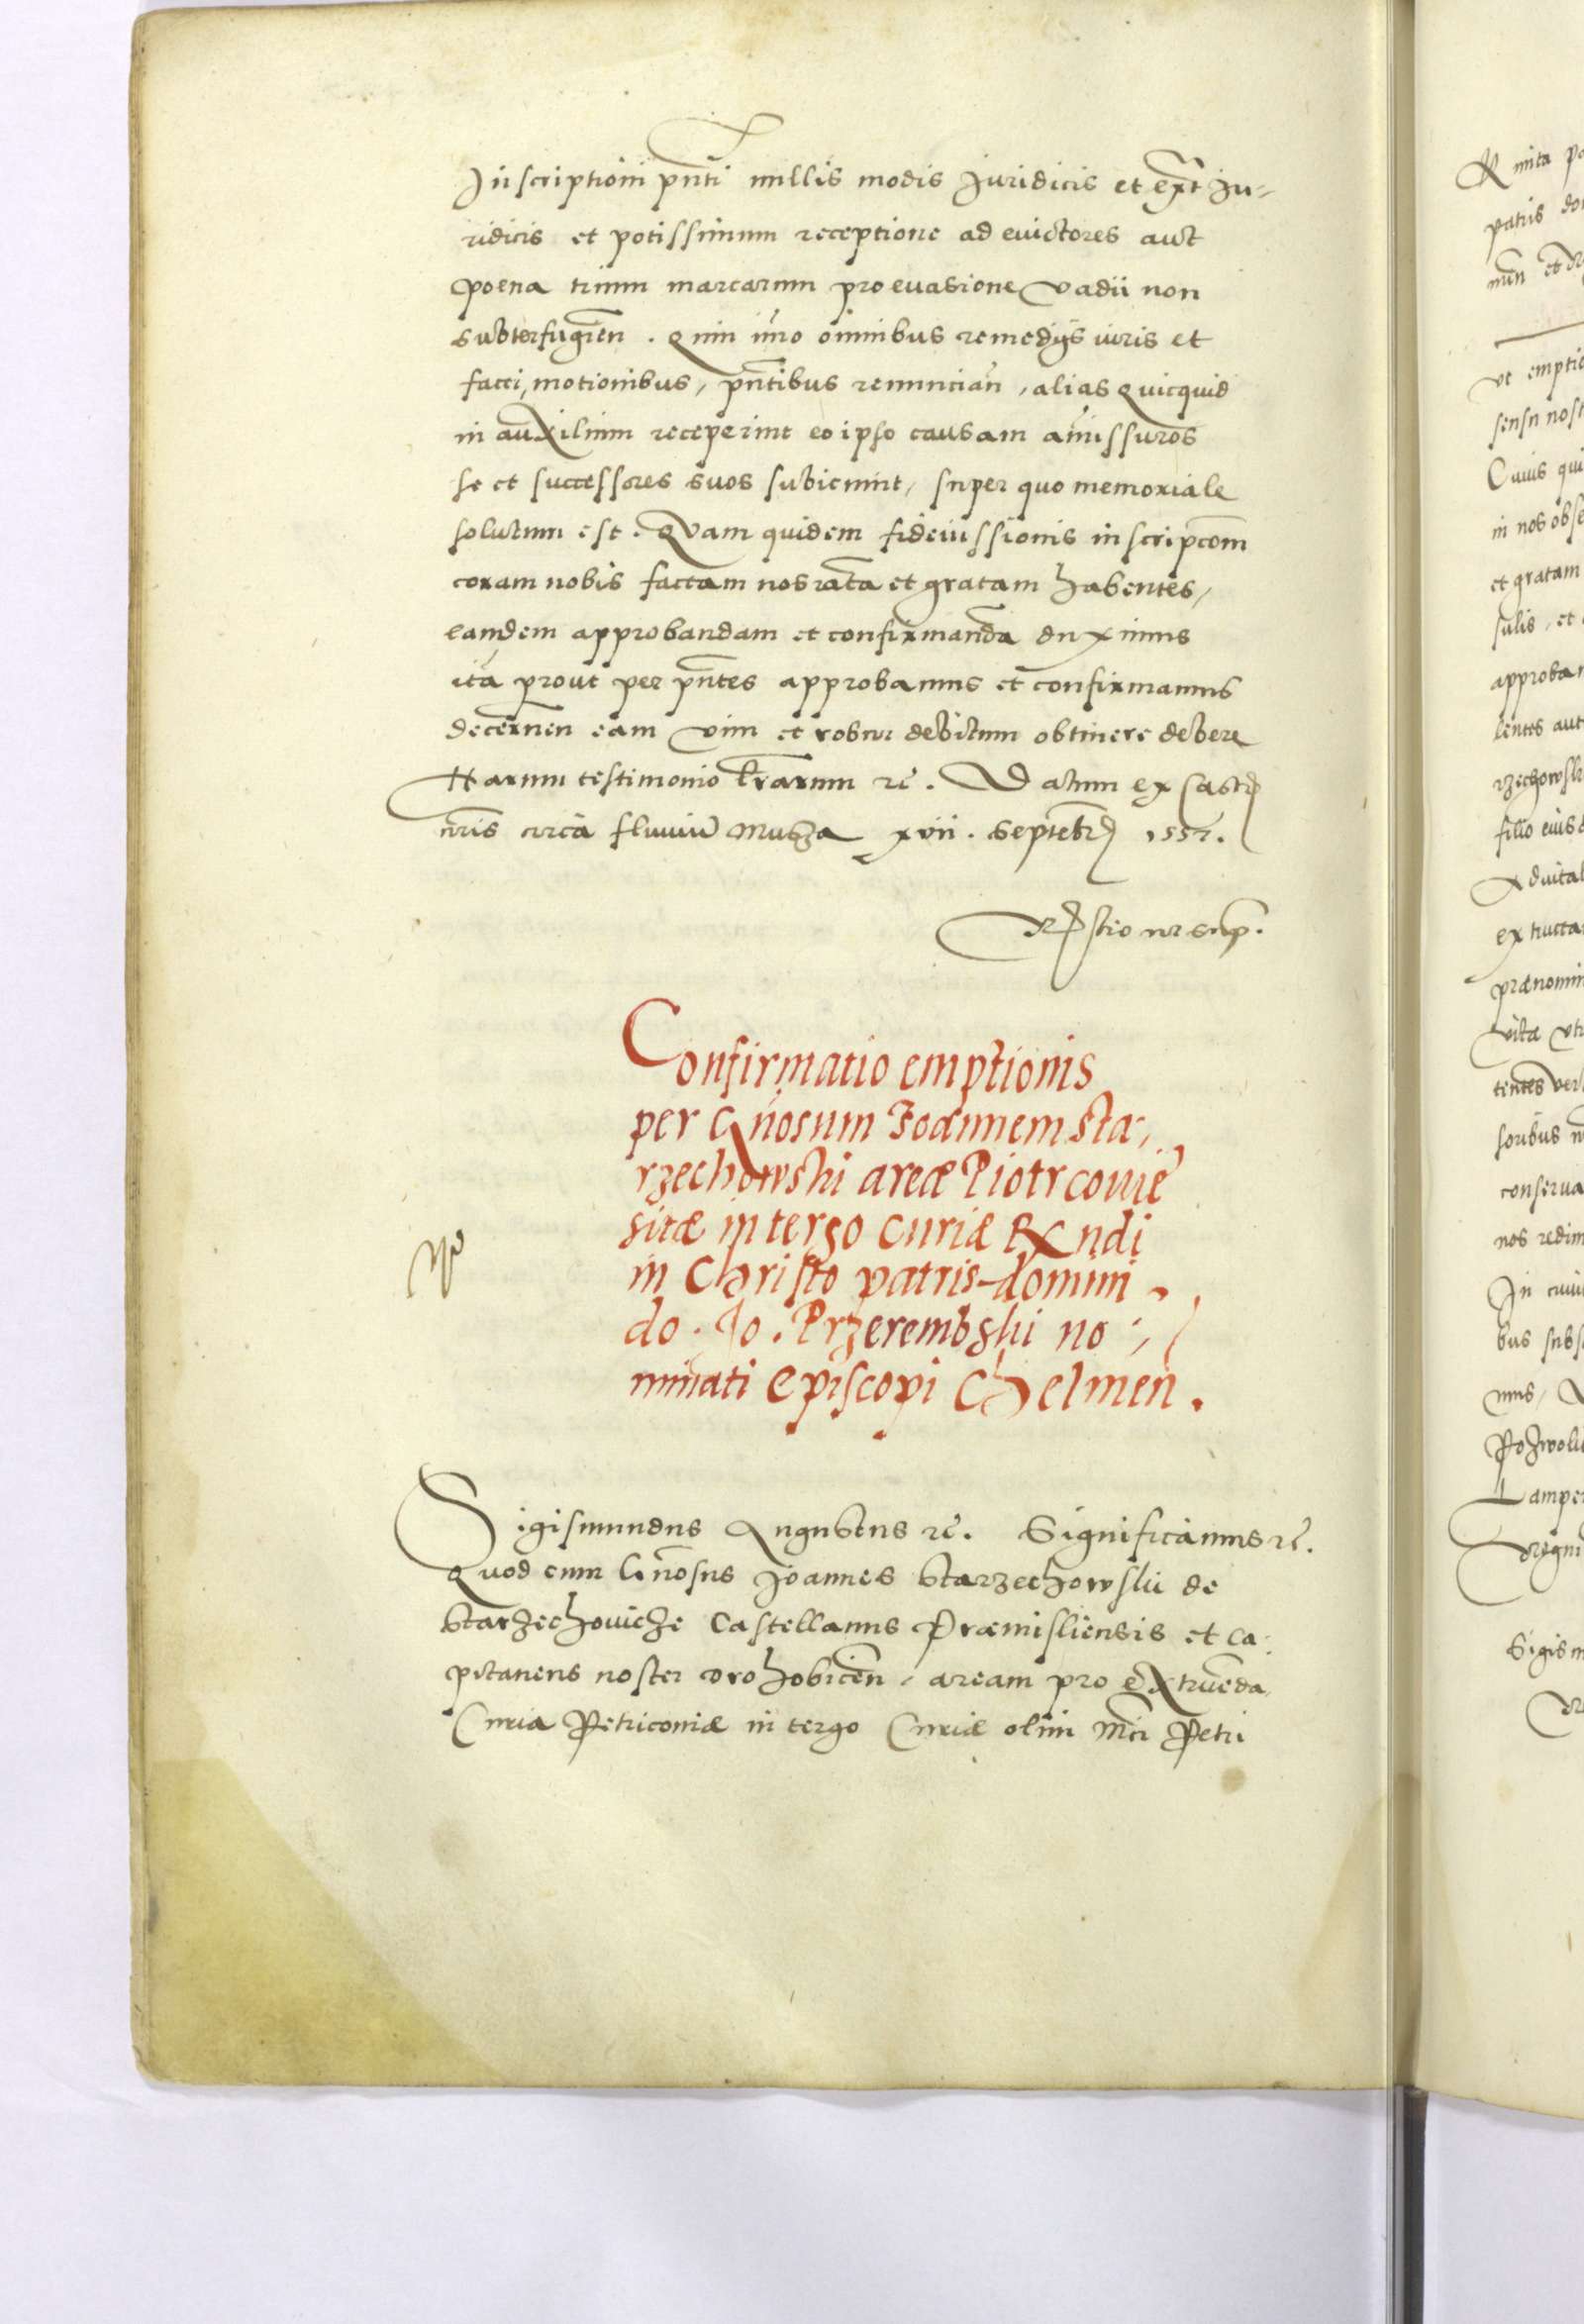 Inscriptioni pñti nullis modis Iuridicis et ext Iu-
ridicis et potissimum receptione ad euictores aut
poena trium marcarum pro euasione vadii non
subterfugien. Quin imo omnibus remedijs iuris et
facti, motionibus, pñtibus renuncian, alias quicquid
in auxilium receperint eo ipso causam amissuros
se et successores suos subiemint, super quo memoriale
solutum est. Quam quidem fideiussionis inscripcom
coram nobis factam nos rata et gratam habentes,
eamdem approbandam et confirmanda duximus
ita prout per pñtes approbamus et confirmamus
decernen eam vim et robur debitum obtinere debere
Harum testimonio lrarum rc. Datum ex Castr
nris circa fluuiu Musza xvii. Septebr 1557.
nr sup.
Confirmatio emptionis
per Gñosum Joannem Sta-
rzechowski areæ Piotrcouie
sitæ in tergo Curiæ Rndi
in Christo patris domini
do. Jo. Przerembski no-
minati Episcopi Chelmen.
Sigismundus Augustus rc. Significamus rc.
Quod cum Gñosus Joannes Starzechowski de
Starzechouicze Castellanus Præmisliensis et Ca-
pitaneus noster Drohobicen, aream pro extruenda
Curia Petricouiæ in tergo Curiæ olim Mci Petri
R nita po
patris do
ve emptio
sensu nost
Cuius qui
in nos obse
et gratam
sulis, et
approban
lentes aut
rzechowsk
filio eius
Aduital
extructa
prænomin
vita vtr
tentes ver
soribus n
conserua
nos redim
In cuiu
bus subs
mus,
Pozwoli
Lamper
Sigism